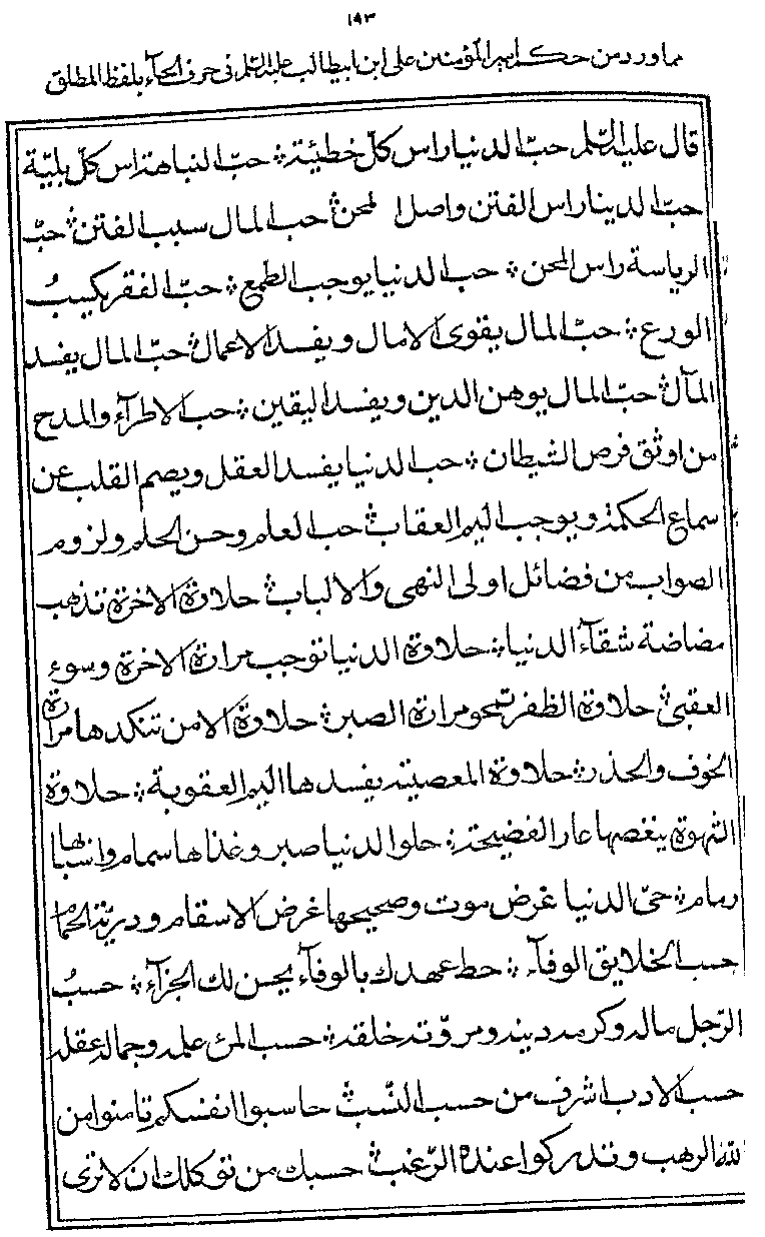 ١٩٣
مما ورد من حكم امير المؤمنين على ابن ابيطالب عليه السّلم فى حرف الحآء بلفظ المطلق
قال عليه السّلم حبّ الدنيا راس كلّ خطيئة ؛ حبّ النباهة راس كلّ بليّة
حبّ الدينا راس الفتن واصل المحن ؛ حب المال سبب الفتن ؛ حبّ
الرياسة راس المحن ؛ حب الدنيا يوجب الطمع ؛ حبّ الفقر يكسبُ
الورع ؛ حبّ المال يقوى الامال ويفسد الاعمال ؛ حبّ المال يفسد
المآل ؛ حبّ المال يوهن الدين ويفسد اليقين ؛ حب الاطرآء والمدح
من اوثق فرص الشيطان ؛ حب الدنيا يفسد العقل ويصم القلب عن
سماع الحكمة ويوجب اليم العقاب ؛ حب العلم وحسن الحلم ولزوم
الصواب من فضائل اولى النهى والالباب ؛ حلاوة الاخرة تذهب
مضاضة شقآء الدنيا ؛ حلاوة الدنيا توجب مرارة الاخرة وسوء
العقبى ؛ حلاوة الظفر تمحو مرارة الصبر ؛ حلاوة الامن تنكدها مرارة
الخوف والحذر ؛ حلاوة المعصية يفسدها اليم العقوبة ؛ حلاوة
الشهوة ينغصها عار الفضيحة ؛ حلو الدنيا صبر وغذاها سمام واسبابها
رمام ؛ حىّ الدنيا غرض موت وصحيحها غرض الاسقام ودريئة الحمام
حسب الخلايق الوفآء ؛ حط عهدك بالوفآء يحسن لك الجزآء ؛ حسبُ
الرّجل ماله وكرمه دينه ومروّته خلقه ؛ حسب المرئ علمه وجماله عقله
حسب الادب اشرف من حسب النّسب ؛ حاسبوا انفسكم تامنوا من
اللّه الرهب وتدركوا عنده الرّغب ؛ حسبك من توكلك ان لا ترى